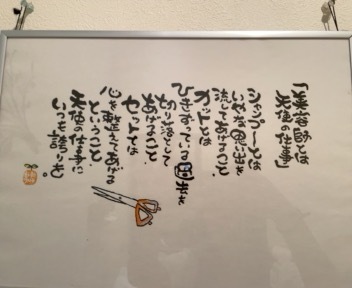 「美容師とは
天使の仕事」
シャンプーとは
いやな思い出を
流してあげること
カットとは
ひきずっている過去を
切り落として
あげること
セットとは
心を整えてあげる
ということ
天使の仕事に
いつも誇りを。